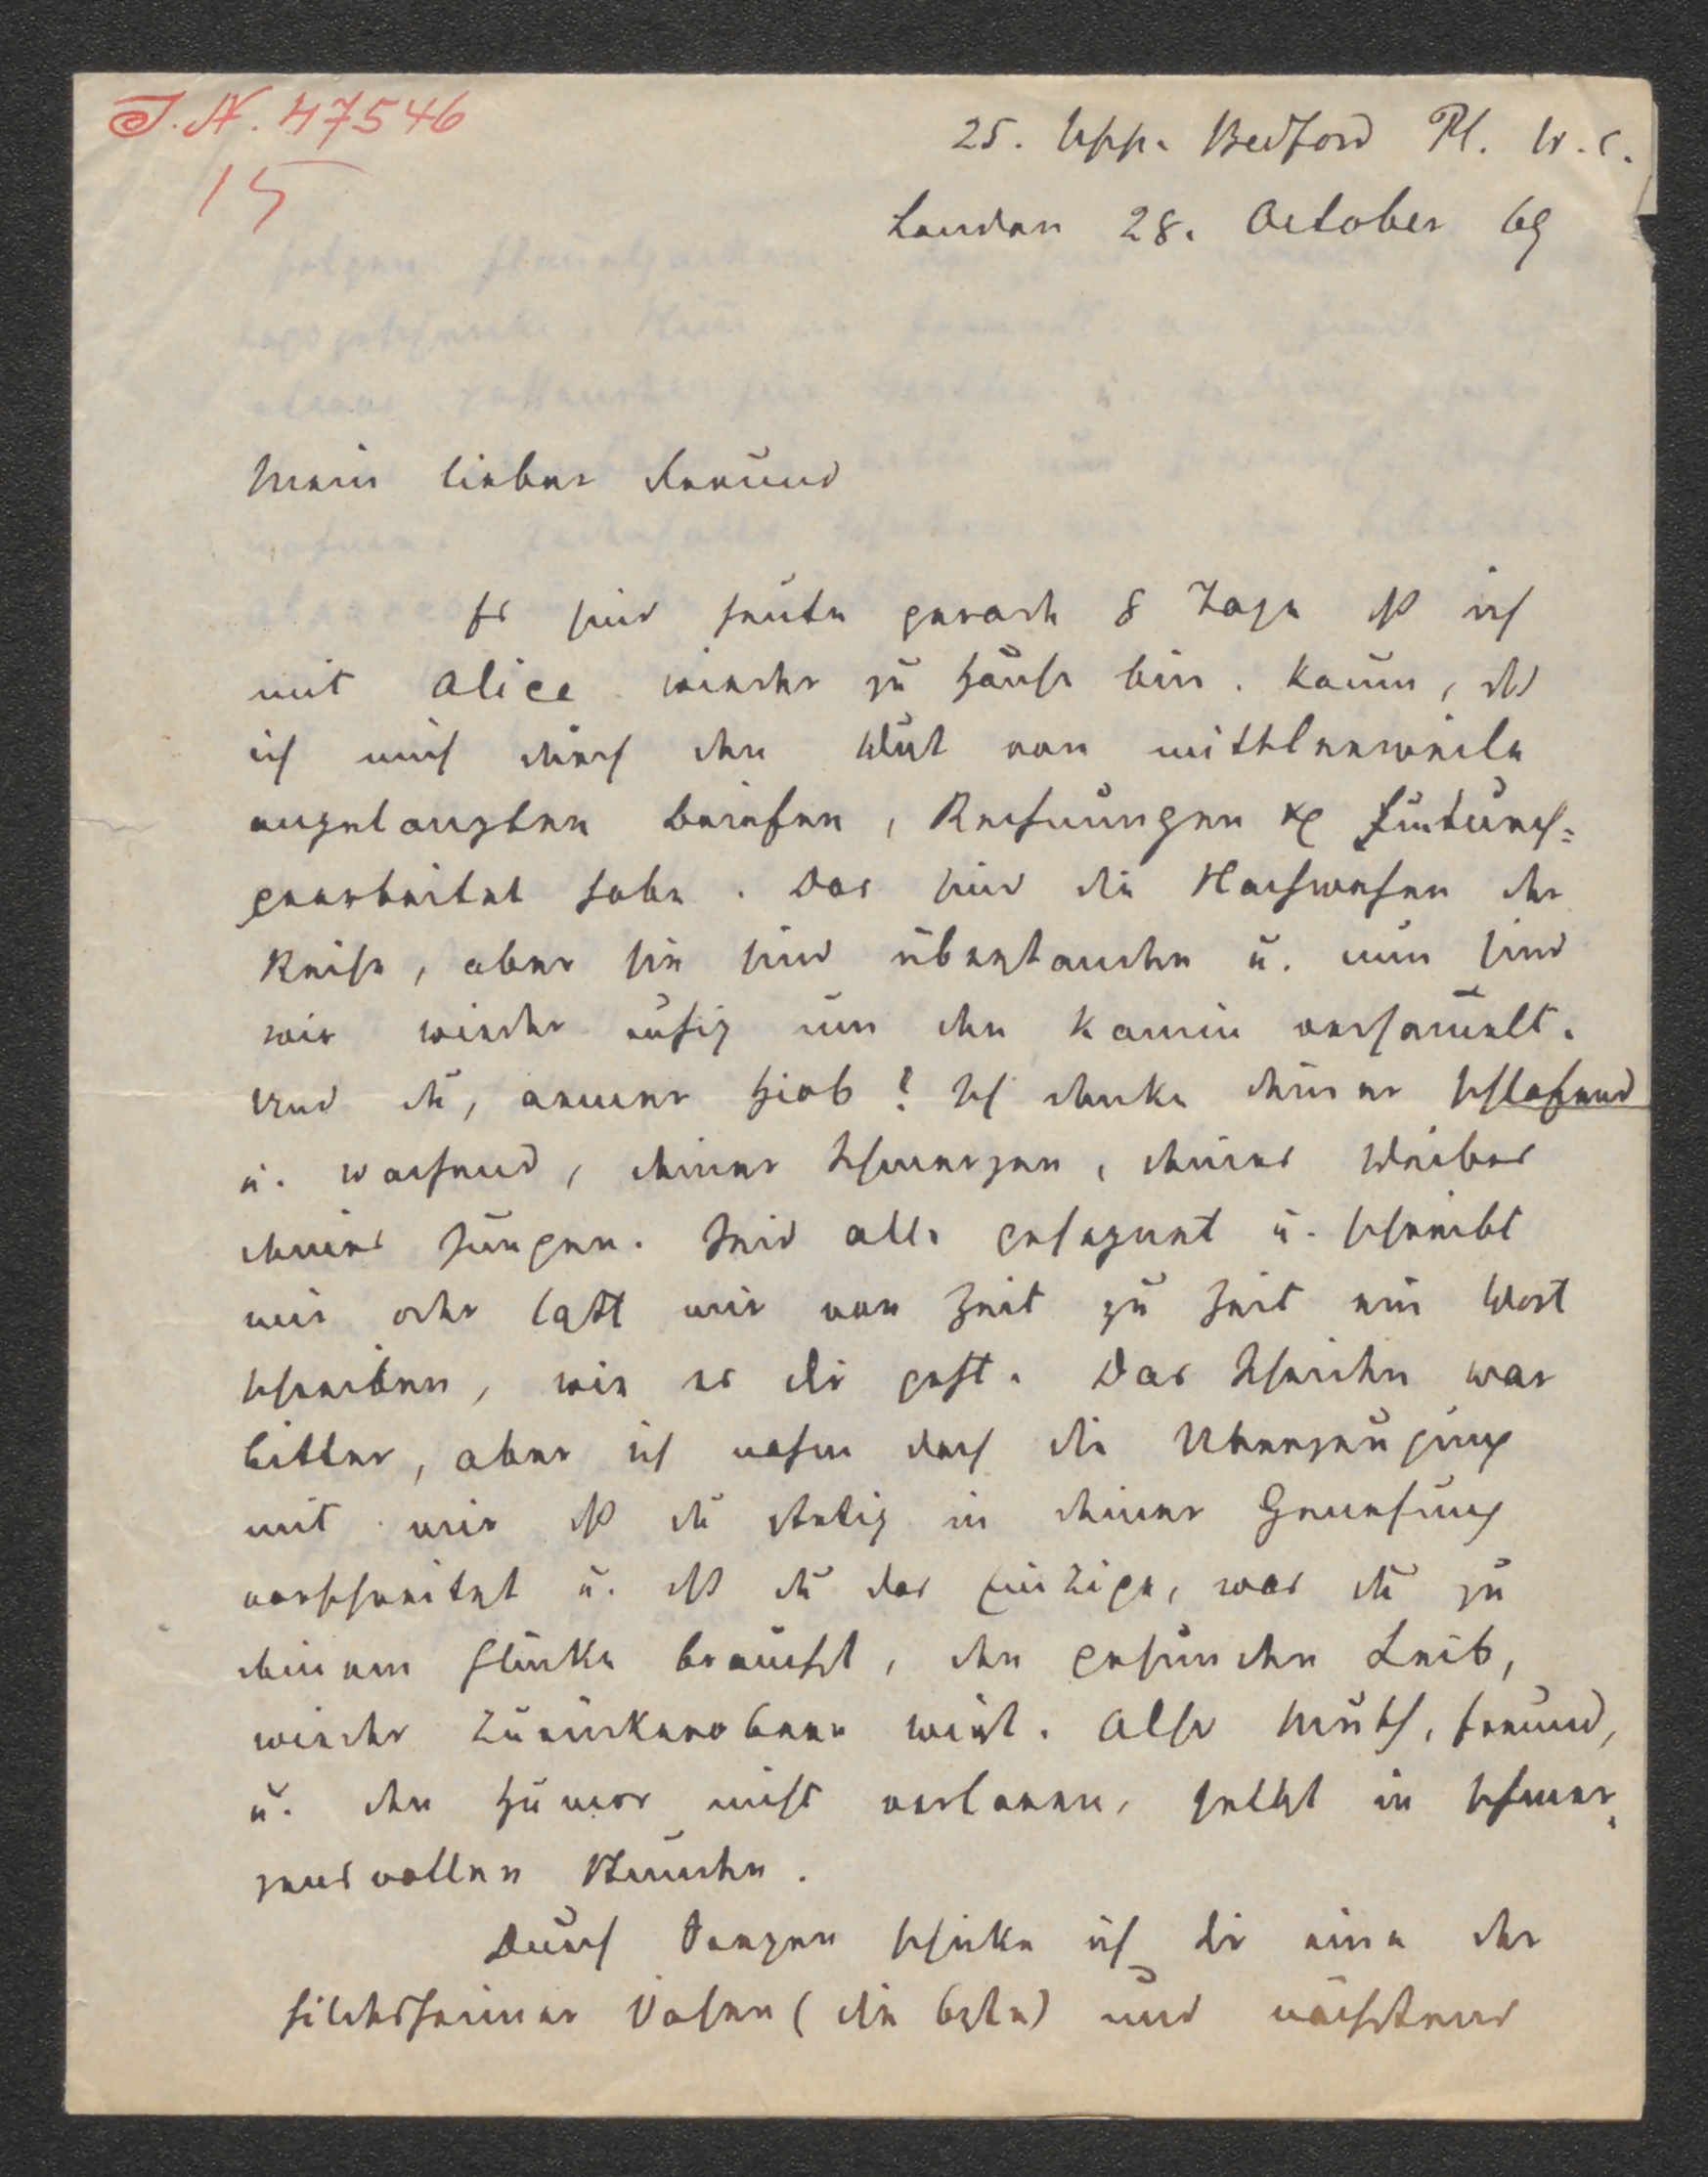 J. N. 47546
15
25. Upp. Bedford Pl. W. C.
London 28. October 69
Mein lieber Freund
Es sind heute gerade 8 Tage dß ich
mit Alice wieder zu Hause bin. Kaum, dß
ich mich durch den Wust von mittlerweile
angelangten Briefen, Rechnungen &
gearbeitet habe. Das sind die Nachwehen der
Reise, aber sie sind überstanden u. nun sind
wir wieder ruhig um den Kamin versam̅elt.
Und du, armer Hiob? Ich denke deiner schlafend
u. wachend, deiner Schmerzen, deines Weibes
deines Jungen. Seid alle gesegnet u. schreibt
mir oder laßt mir von Zeit zu Zeit ein Wort
schreiben, wie es dir geht. Das Scheiden war
bitter, aber ich nahm doch die Überzeugung
mit mir dß du stetig in deiner Genesung
vorschreitest u. dß du das Einzige, was du zu
deinem Glücke brauchst, den gesunden Leib,
wieder zurückerobern wirst. Also Muth, Freund,
u. den Humor nicht verloren, selbst in schmer-
zensvollen Stunden.
Durch schicke ich dir eine der
Hildesheimer Vasen (die beste) und nächstens